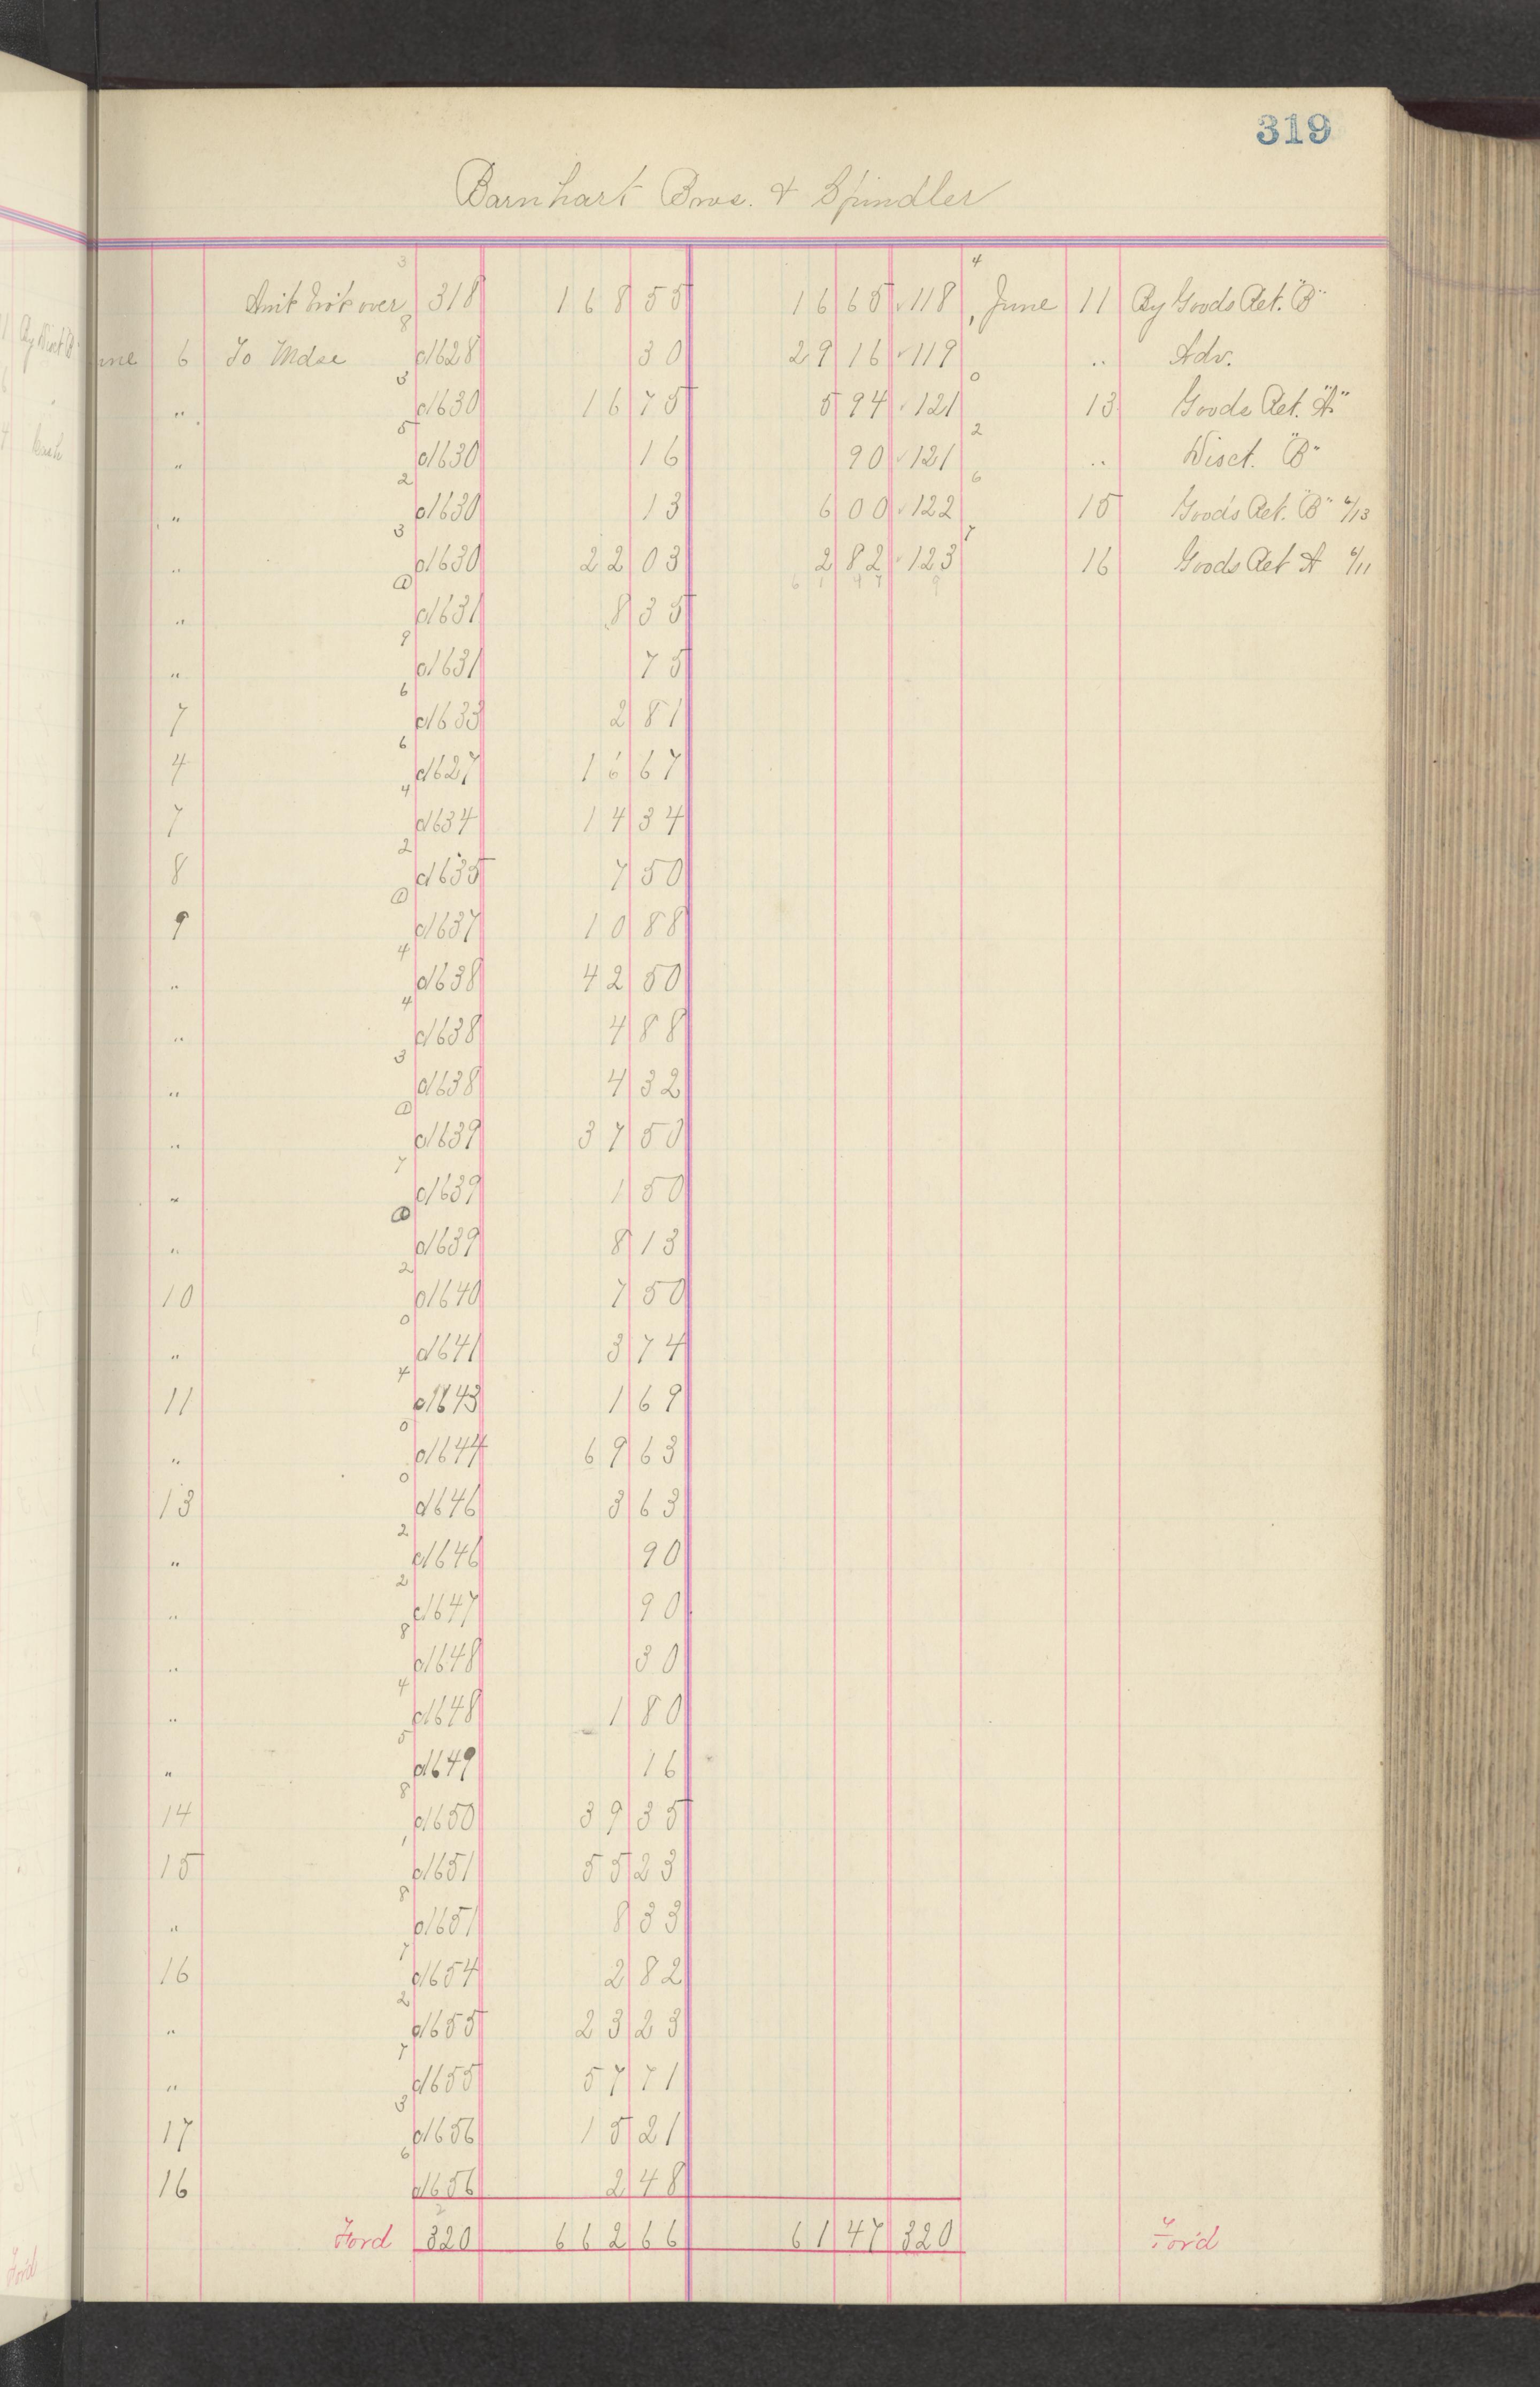 319
Barnhart Bros. & Spindler
3 4
Amt bro't over 318 168 55 16 65 118 June 11 By Goods Ret. "B"
8
June 6 To Mdse 1628 30 29 16 119 " Adv.
3 0
" 1630 16 75 5 94 121 13 Goods Ret. "A"
5 2
" 1630 16 90 121 " Disct. "B"
2 6
" 1630 13 6 00 122 15 Goods Ret. "B" 6/13
3 7
" 1630 22 03 2 82 123 16 Goods Ret A 6/11
61 47 9
" 1631 8 35
9
" 1631 75
6
7 1633 2 81
6
4 1627 16 67
4
7 1634 14 34
2
8 1635 7 50
9 1637 10 88
4
" 1638 42 50
4
" 1638 4 88
3
" 1638 4 32
" 1639 37 50
7
" 1639 1 50
" 1639 8 13
2
10 1640 7 50
0
" 1641 3 74
4
11 1643 1 69
0
" 1644 69 63
0
13 1646 3 63
2
" 1646 90
2
" 1647 90
8
" 1648 30
4
" 1648 1 80
5
" 1649 16
8
14 1650 39 35
1
15 1651 55 23
8
" 1651 8 33
7
16 1654 2 82
2
" 1655 23 23
7
" 1655 57 71
3
17 1656 15 21
6
16 1656 2 48
2
Ford 320 662 66 61 47 320 For'd